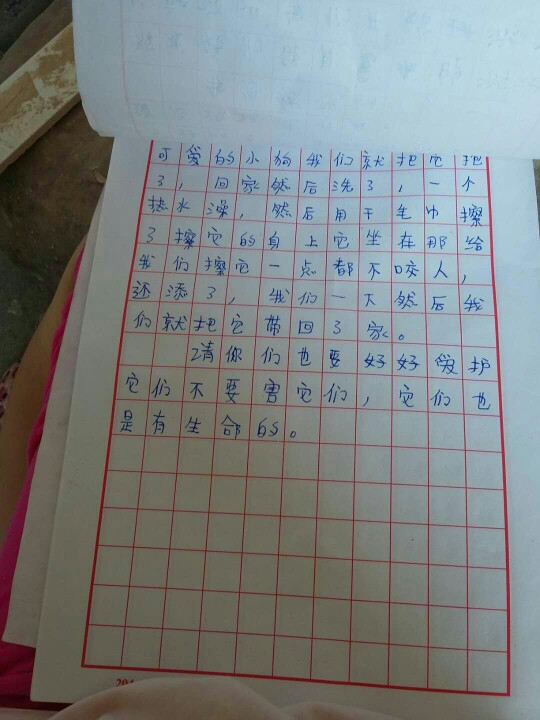 可爱的小狗我们就把它把
了，回家然后洗了，一个
热水澡，然后用干毛巾擦
了擦它的身上它坐在那给
我们擦它一点都不咬人，
还添了，我们一下然后我
们就把它带回了家。
请你们也要好好爱护
它们不要害它们，它们也
是有生命的。